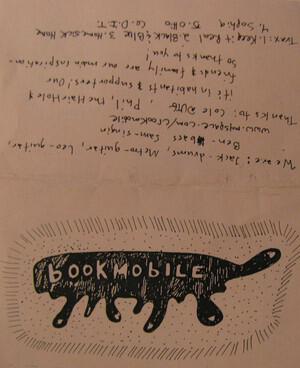 BOOKMOBILE
We are: Jack-drums, Metro-guitar, Leo-guitar,
Ben- baes Sam-singin
www.myspace.com/crookmobile
Thanks to: Cole, Phil, the HairHole &
it's inhabitants & supporters! Our
friends & family are our main inspiration-
So thanks to you!
Trax: 1. Keep it Real 2. Black & Blue 3. Home sick Home
4. Sophia 5. Ohio Co. D.I.T.